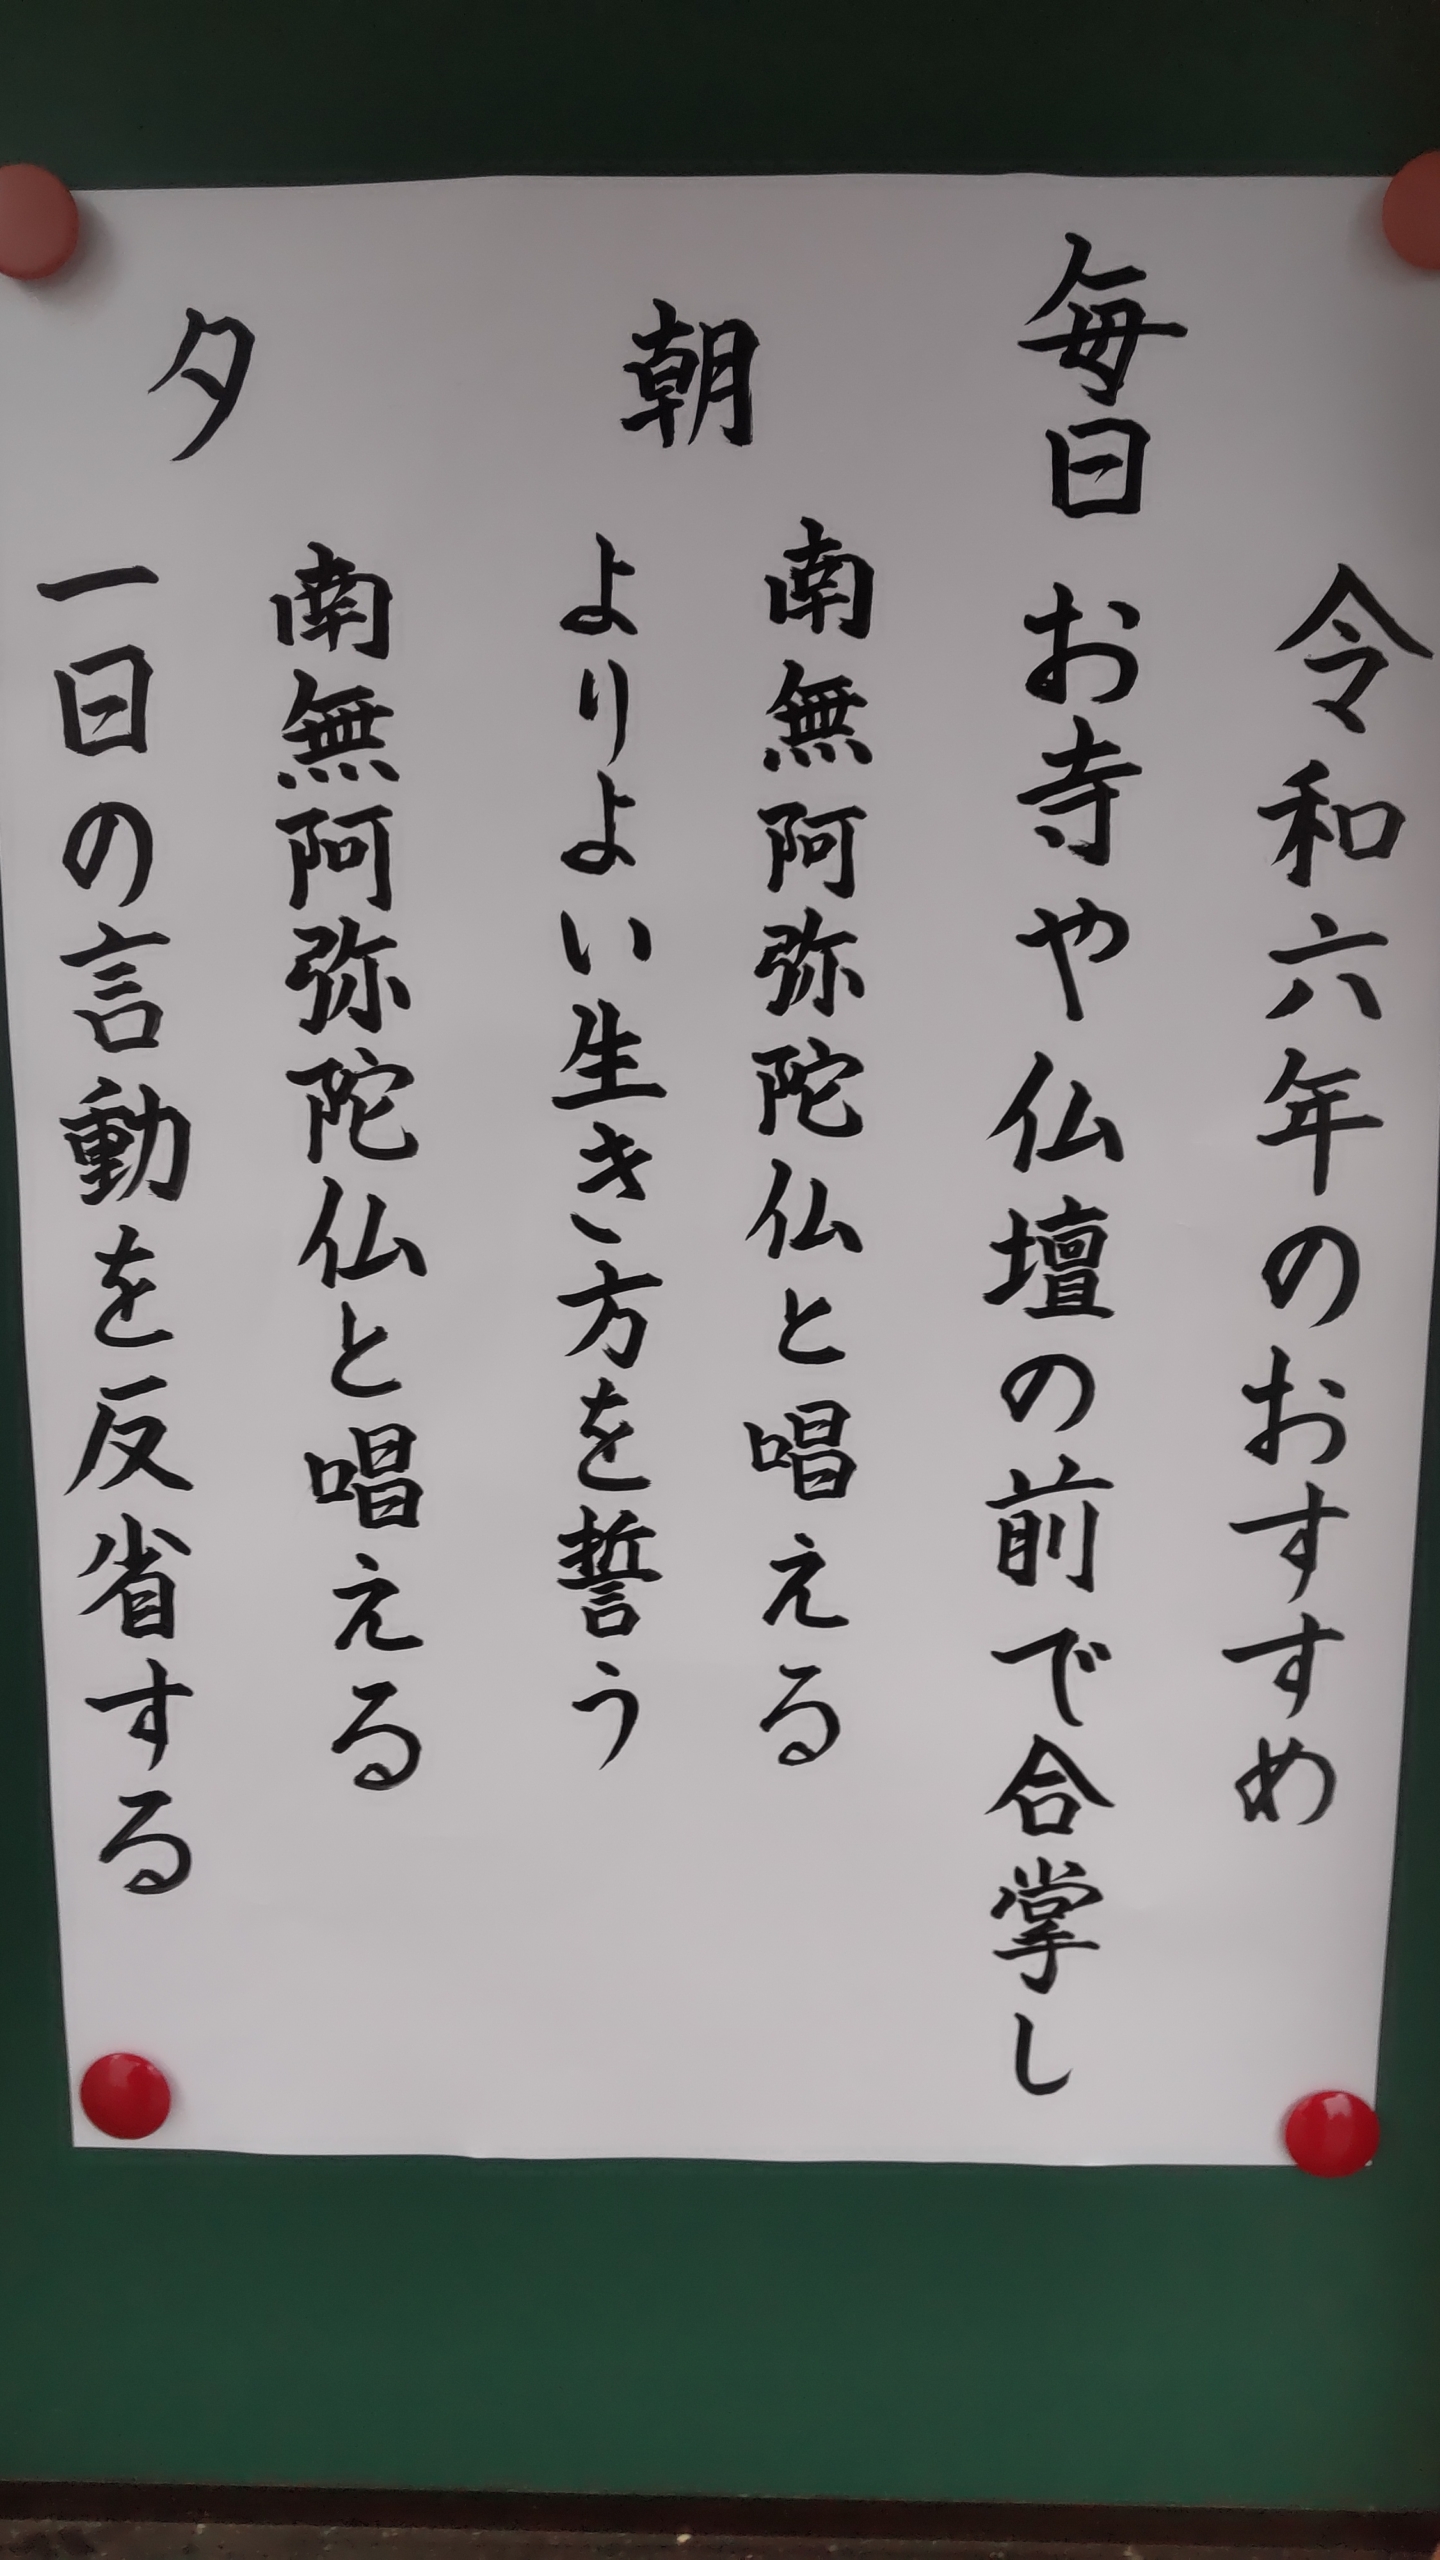 令和六年のおすすめ
毎日 お寺や仏壇の前で合掌し
朝
南無阿弥陀仏と唱える
よりよい生き方を誓う
夕
南無阿弥陀仏と唱える
一日の言動を反省する